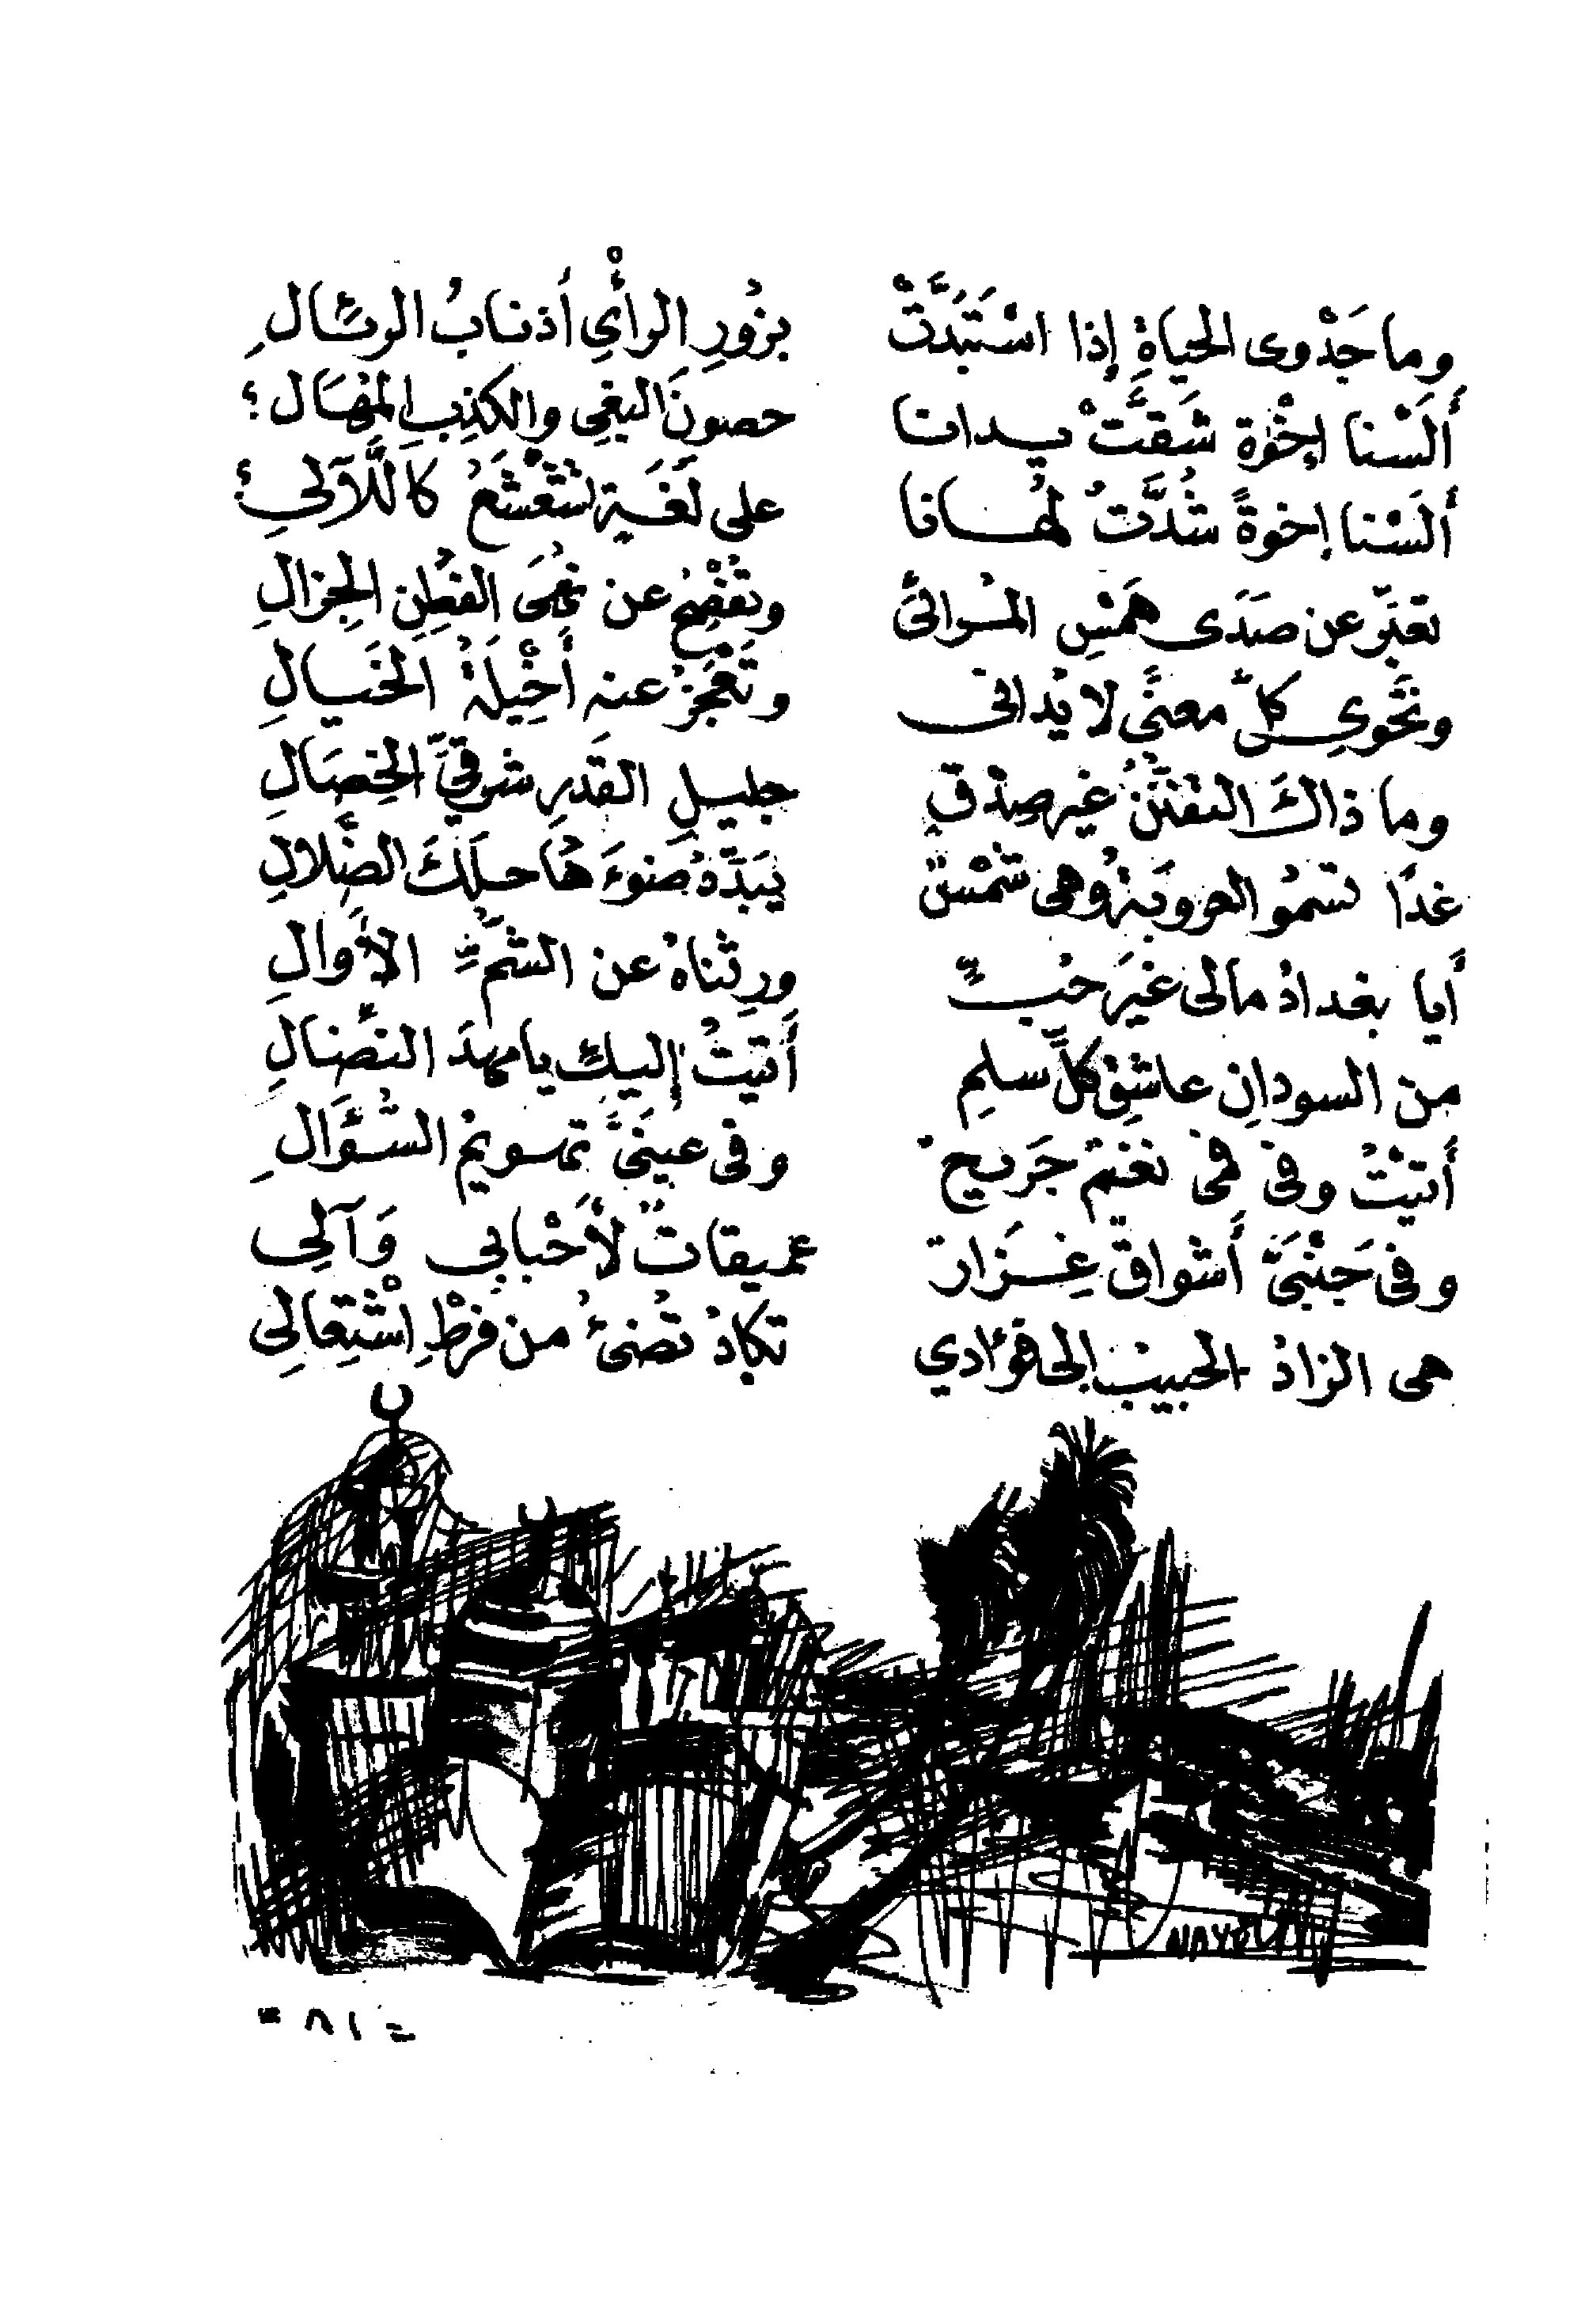 وما جَدْوى الحياةِ إذا اسْتَبَدَّتْ بزُورِ الرأْيِ أذنابُ الرئَال
أَلَسْنا إخْوة شَقَّتْ يدانا حصونَ البغي والكذِبِ المُهَال؛
أَلَسْنا إخوةً شُدَّتْ لُهانا على لغة تشَعْشَعُ كاللَّآلِئ
تعبّر عن صَدَى هَمْسِ السواقى وتُفْصِحُ عن نُهَى الفُطِنِ الجِزالِ
وتَحْوِي كلّ معنىً لا يُدانى وتَعْجَزُ عنه أَخْيِلَةُ الخَيالِ
وما ذاكَ التفنّنُ غير صِدْقٍ جليلِ القَدرِ شرقيَّ الخِصَالِ
غدًا تسمُو العروبَةُ وهى شَمْسٌ يُبَدّدُ ضوءَهُا حلَكَ الضَّلالِ
أَيا بغدادُ مالى غيَر حُبٍّ ورِثناهُ عن الشمِّ الأَوالِ
من السودانِ عاشِقِ كلَّ سلمٍ أَتيتُ إليكِ يا مهدَ النضَالِ
أَتيْتُ وفى فمى نغيمٌ جَريحٌ وفى عينىَّ تمويمُ السُّؤَالِ
وفى جَنْبَىَّ أَشواقٌ غِزارٌ عميقاتٌ لأَحْبابِي وَآلِى
هى الزادُ الحبيبُ إلى فؤادي تكادُ تُضئُ من فرْطِ اشْتِعالِى
NAYEL
= ٨١ =